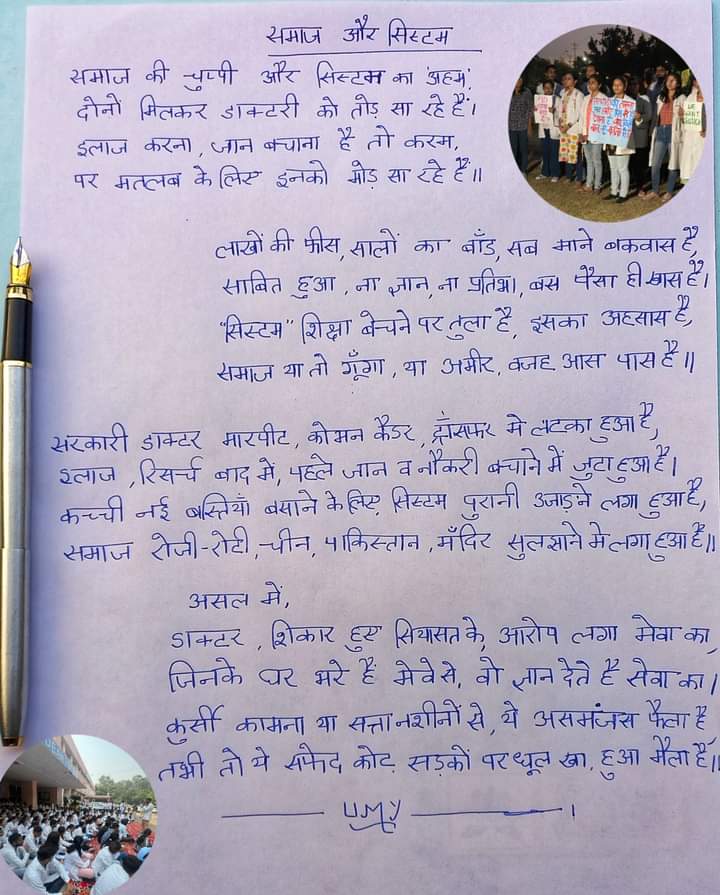 समाज और सिस्टम
समाज की चुप्पी और सिस्टम का अहम,
दोनों मिलकर डाक्टरी को तोड़ सा रहे हैं।
इलाज करना, जान बचाना है तो करम,
पर मतलब के लिए इनको मोड़ सा रहे हैं॥
लाखों की फीस, सालों का बाँड, सब माने बकवास है,
साबित हुआ, ना ज्ञान, ना प्रतिभा, बस पैसा ही खास है।
"सिस्टम" शिक्षा बेचने पर तुला है, इसका अहसास है,
समाज या तो गूँगा, या अमीर, वजह आस पास है॥
सरकारी डाक्टर मारपीट, कोमन कैडर, ट्राँसफर मे लटका हुआ है,
इलाज, रिसर्च बाद में, पहले जान व नौकरी बचाने में जुटा हुआ है।
कच्ची नई बस्तियाँ बसाने के लिए सिस्टम पुरानी उजाड़ने लगा हुआ है,
समाज रोजी-रोटी, चीन, पाकिस्तान, मँदिर सुलझाने मे लगा हुआ है॥
असल में,
डाक्टर, शिकार हुए सियासत के, आरोप लगा मेवा का,
जिनके घर भरे हैं मेवे से, वो ज्ञान देते है सेवा का।
कुर्सी कामना या सत्तानशीनों से, ये असमंजस फैला है,
तभी तो ये सफेद कोट सड़कों पर धूल खा, हुआ मैला है॥
WE WANT